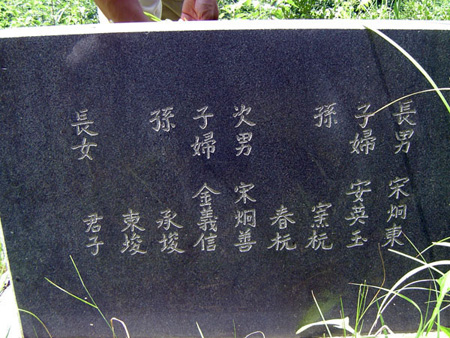 長男 宋炯東
子婦 安英玉
孫 杬
春杬
次男 宋炯善
子婦 金義信
孫 承埈
東埈
長女 君子